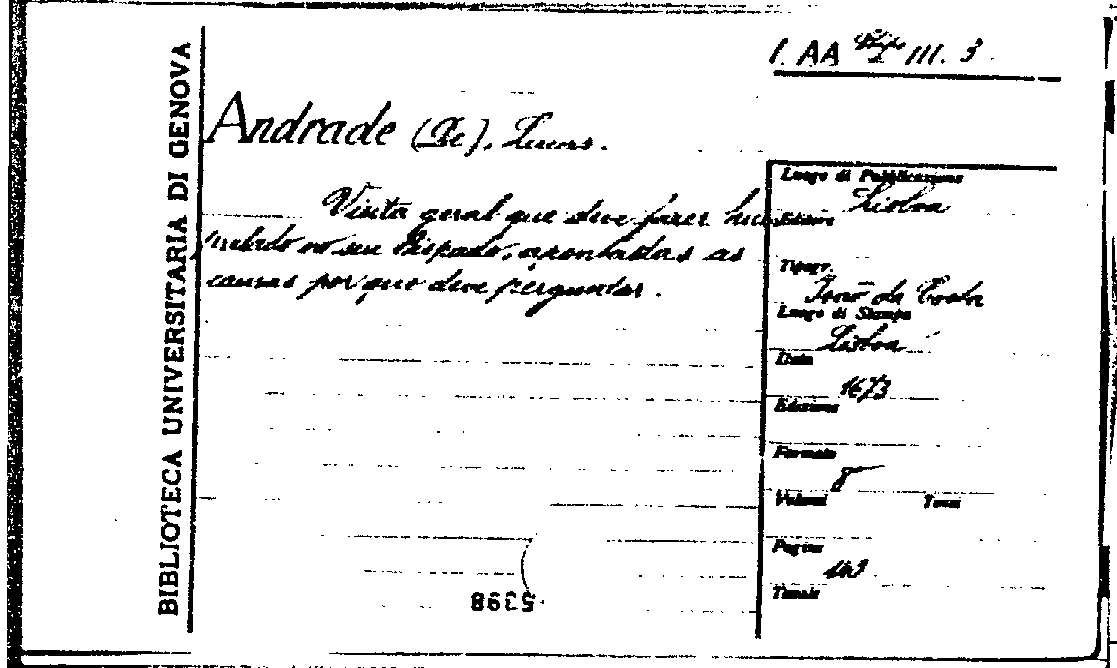 BIBLIOTECA UNIVERSITARIA DI GENOVA
1. AA III. 3
Andrade (De), Lucas.
Visita geral que deve fazer hum
Prelado no seu Bispado, apontadas as
causas por que deve perguntar.
Luogo di Pubblicazione
Lisboa
Editore
Tipogr.
João da Costa
Luogo di Stampa
Lisboa
Data
1673
Edizione
Formato
8
Volumi Tomi
Pagine
163
Tavole
5398